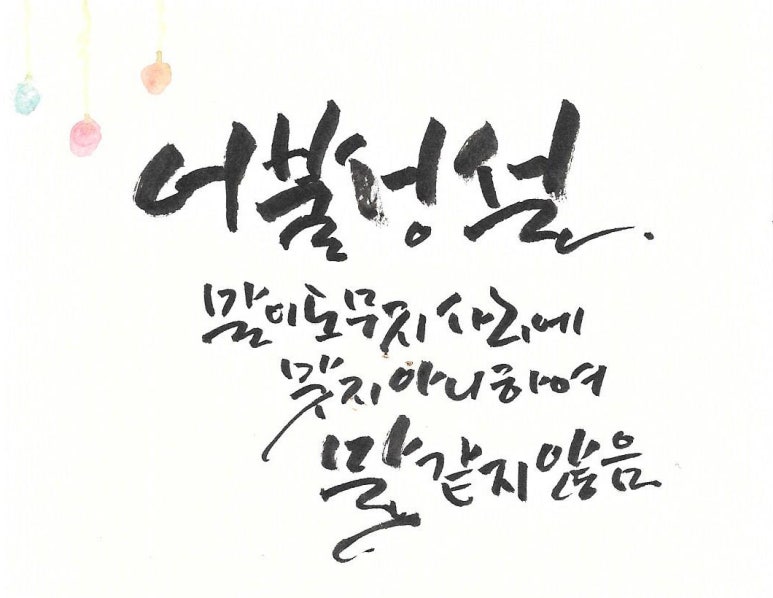 어불성설.
말이 도무지 사리에
맞지 아니하여
말 같지 않음